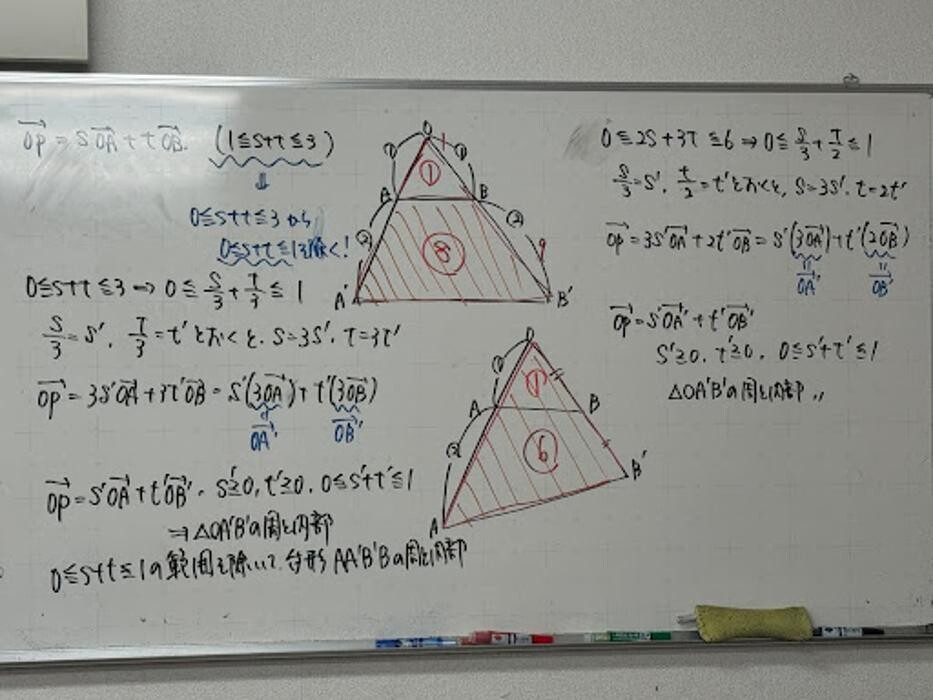 OP→ = sOA→ + tOB→. (1≦s+t≦3)
⇓
0≦s+t≦3から
0≦s+t≦1除く!
0≦s+t≦3 ⇒ 0≦s/3+t/3≦1
s/3=s'. t/3=t'とおくと. s=3s'. t=3t'
OP→=3s'OA→+3t'OB→=s'(3OA→)+t'(3OB→)
=OA'→ =OB'→
OP→=s'OA'→+t'OB'→. s'≧0, t'≧0. 0≦s'+t'≦1
⇒△OA'B'の周と内部
0≦s+t≦1の範囲を除いて. 台形AA'B'Bの周と内部
O
① ①
①
A B
② ②
⑧
A' B'
O
① ①
A B
② ⑥
B'
A
0≦2s+3t≦6 ⇒ 0≦s/3+t/2≦1
s/3=s'. t/2=t'とおくと, s=3s'. t=2t'
OP→=3s'OA→+2t'OB→=s'(3OA→)+t'(2OB→)
=OA'→ =OB'→
OP→=s'OA'→+t'OB'→
s'≧0. t'≧0. 0≦s'+t'≦1
△OA'B'の周と内部